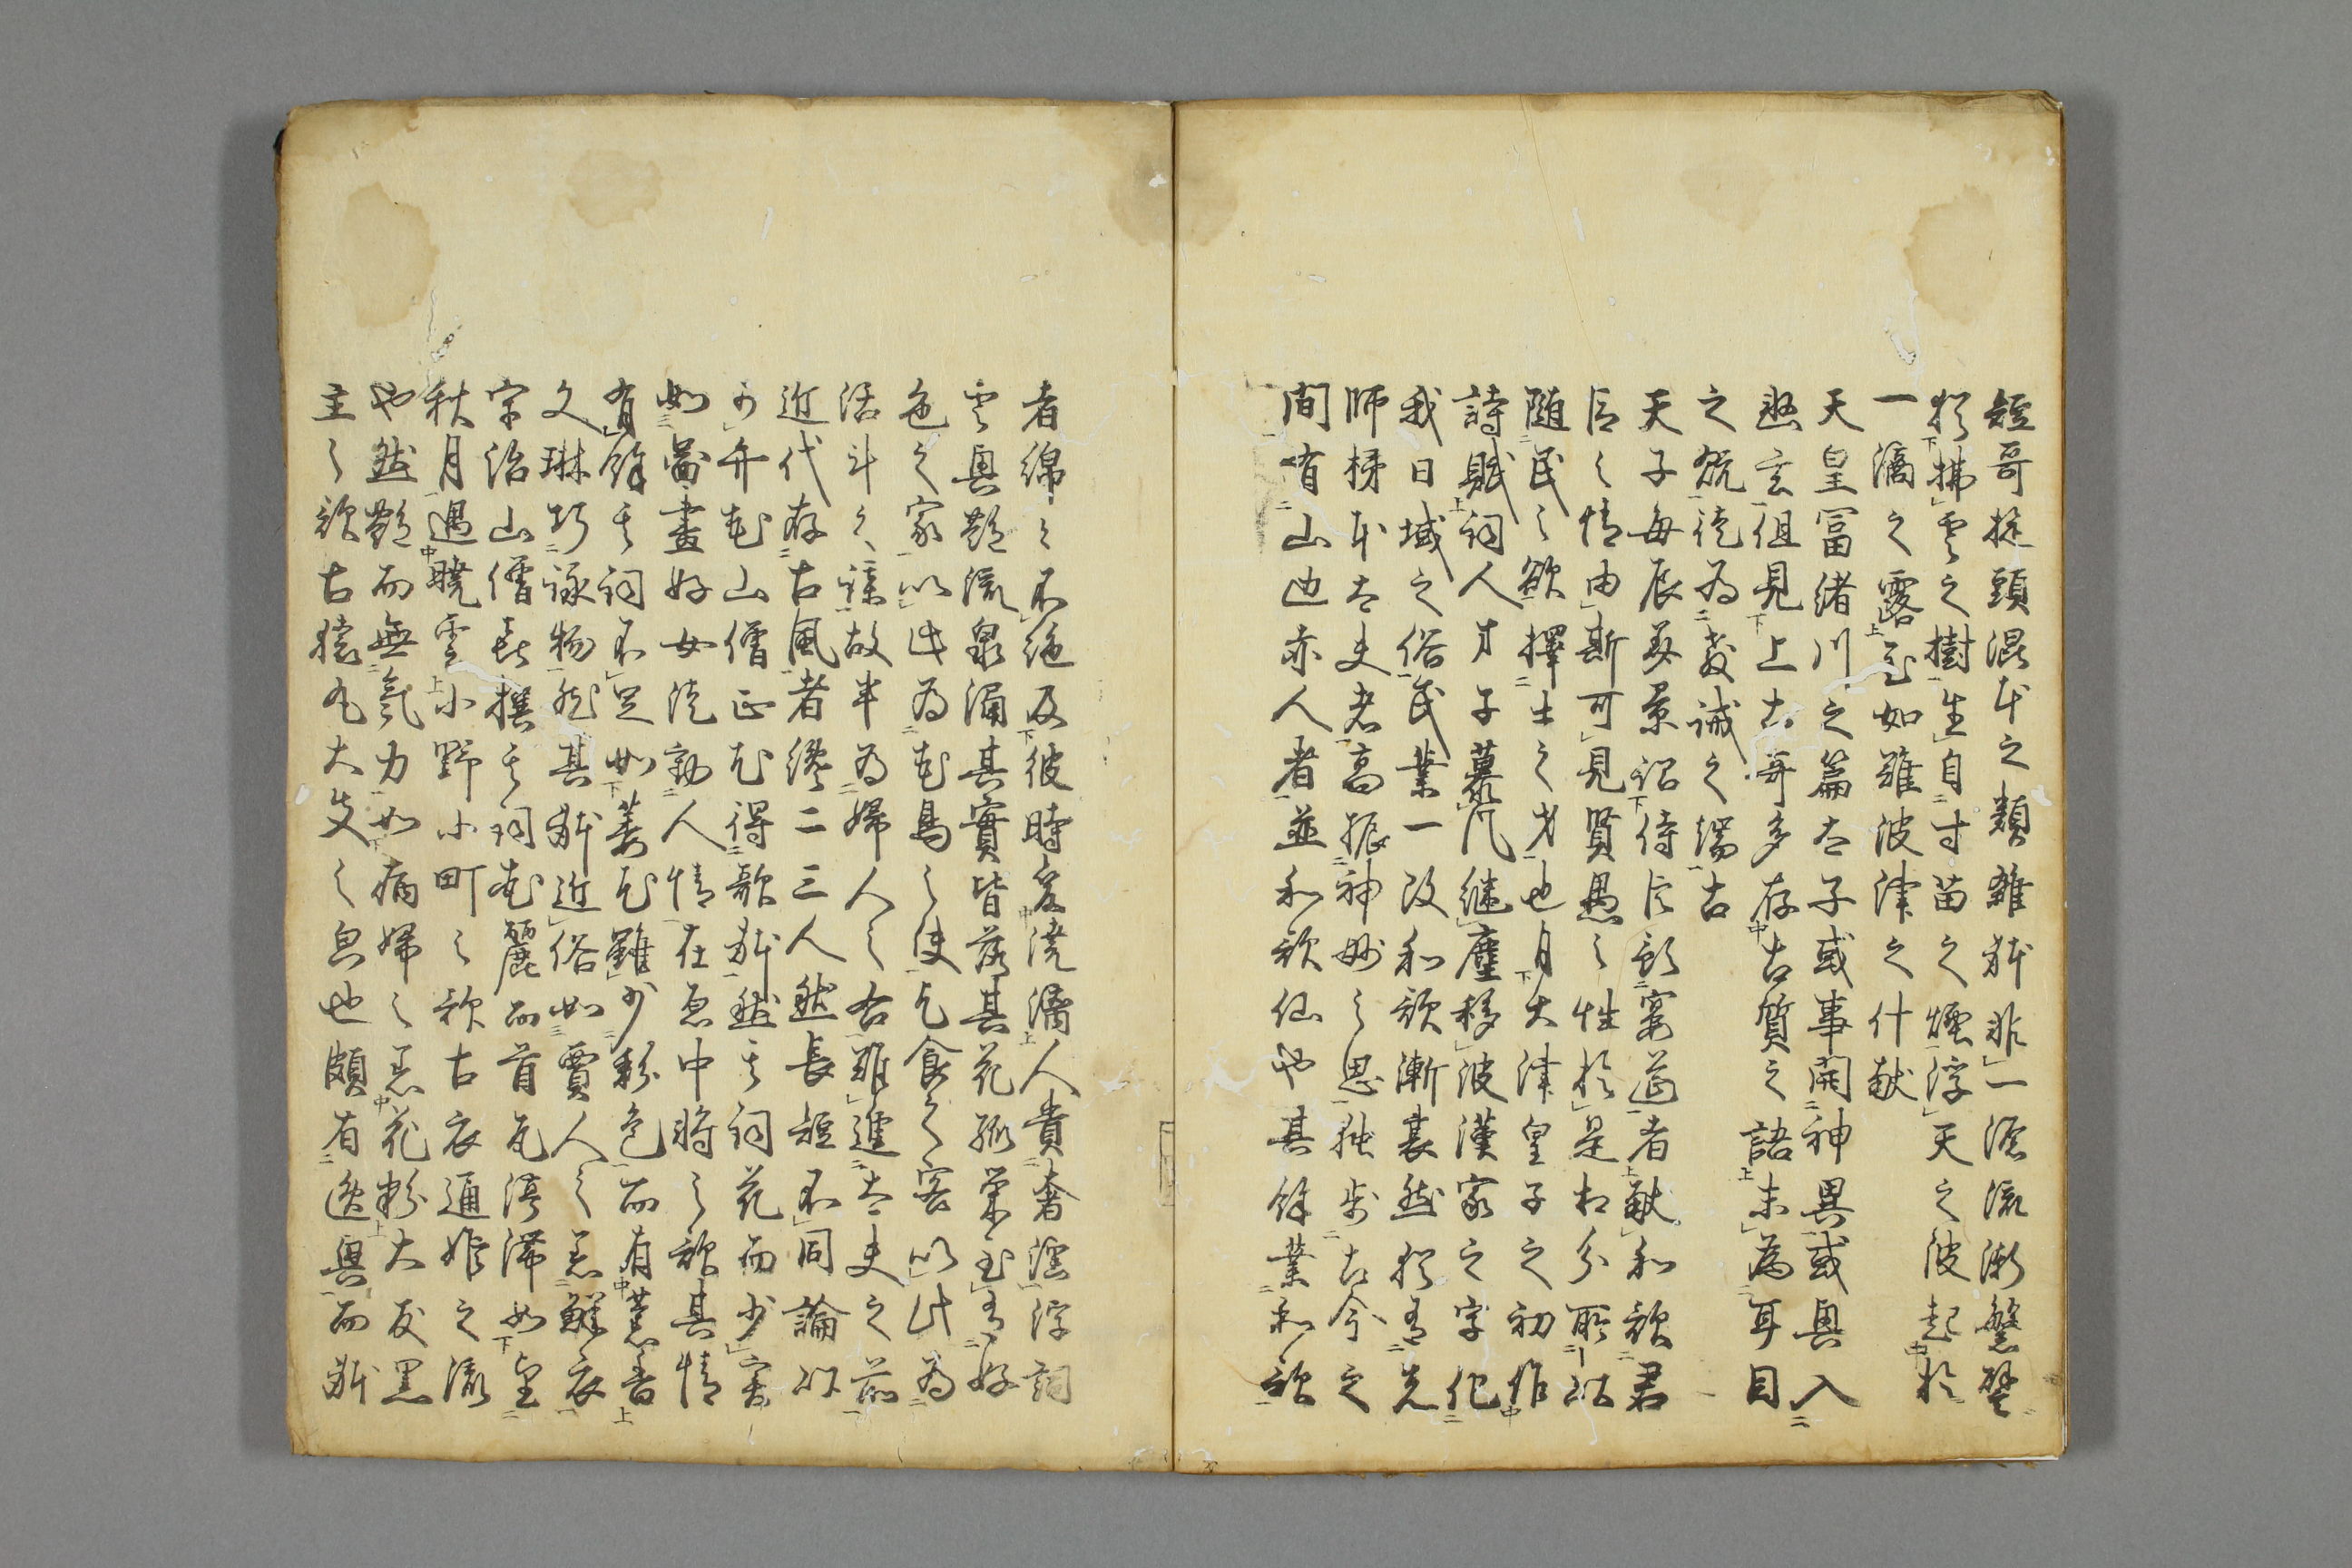 短哥旋頭混本之類雑躰非一源流漸繁譬
猶拂雲之樹生自寸苗之煙浮天之波起於
一滴之露至如難波津之什献
天皇冨緒川之篇太子或事開神異或興入
幽玄但見上古哥多存古質之語未為耳目
之翫徒為教誡之端古
天子毎辰美景詔侍臣預宴莚者献和歌君
臣之情由斯可見賢愚之性於是相分所以
随民之欲擇士之才也自大津皇子之初作
詩賦詞人才子慕風継塵移彼漢家之字化
我日域之俗民業一改和歌漸衰然猶有先
師柿本太夫者高振神妙之思独歩古今之
間有山辺赤人者並和歌仙也其餘業和歌
者綿々不絶及彼時変澆漓人貴奢淫浮詞
雲興艶流泉涌其實皆落其花孤栄至有好
色之家以此為花鳥之使乞食之客以此為
活計之謀故半為婦人之右難進太夫之前
近代存古風者纔二三人然長短不同論以
可弁花山僧正尤得歌躰然其詞花而少実
如圖畫好女徒動人情在原中将之歌其情
有餘其詞不足如萎花雖少彩色而有薫香
文琳巧詠物然其躰近俗如賈人之着鮮衣
宇治山僧喜撰其詞花麗而首尾停滞如望
秋月遇暁雲小野小町之歌古衣通姫之流
也然艶而無氣力如病婦之着花粉大友黒
主之歌古猿丸大夫之次也頗有逸興而躰